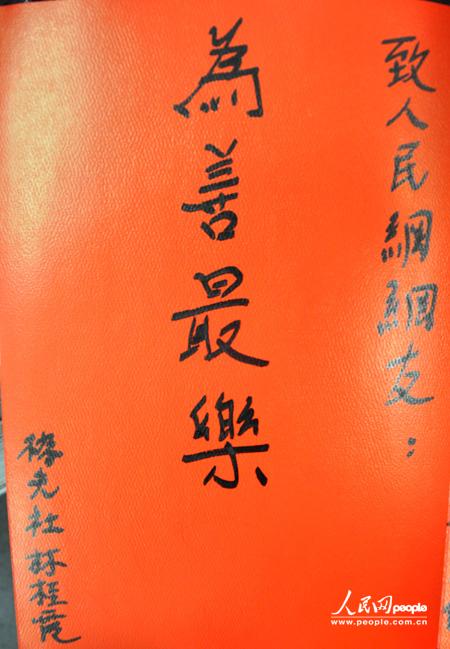 致人民網網友：
為善最樂
林桂霞
人民网people
www.people.com.cn